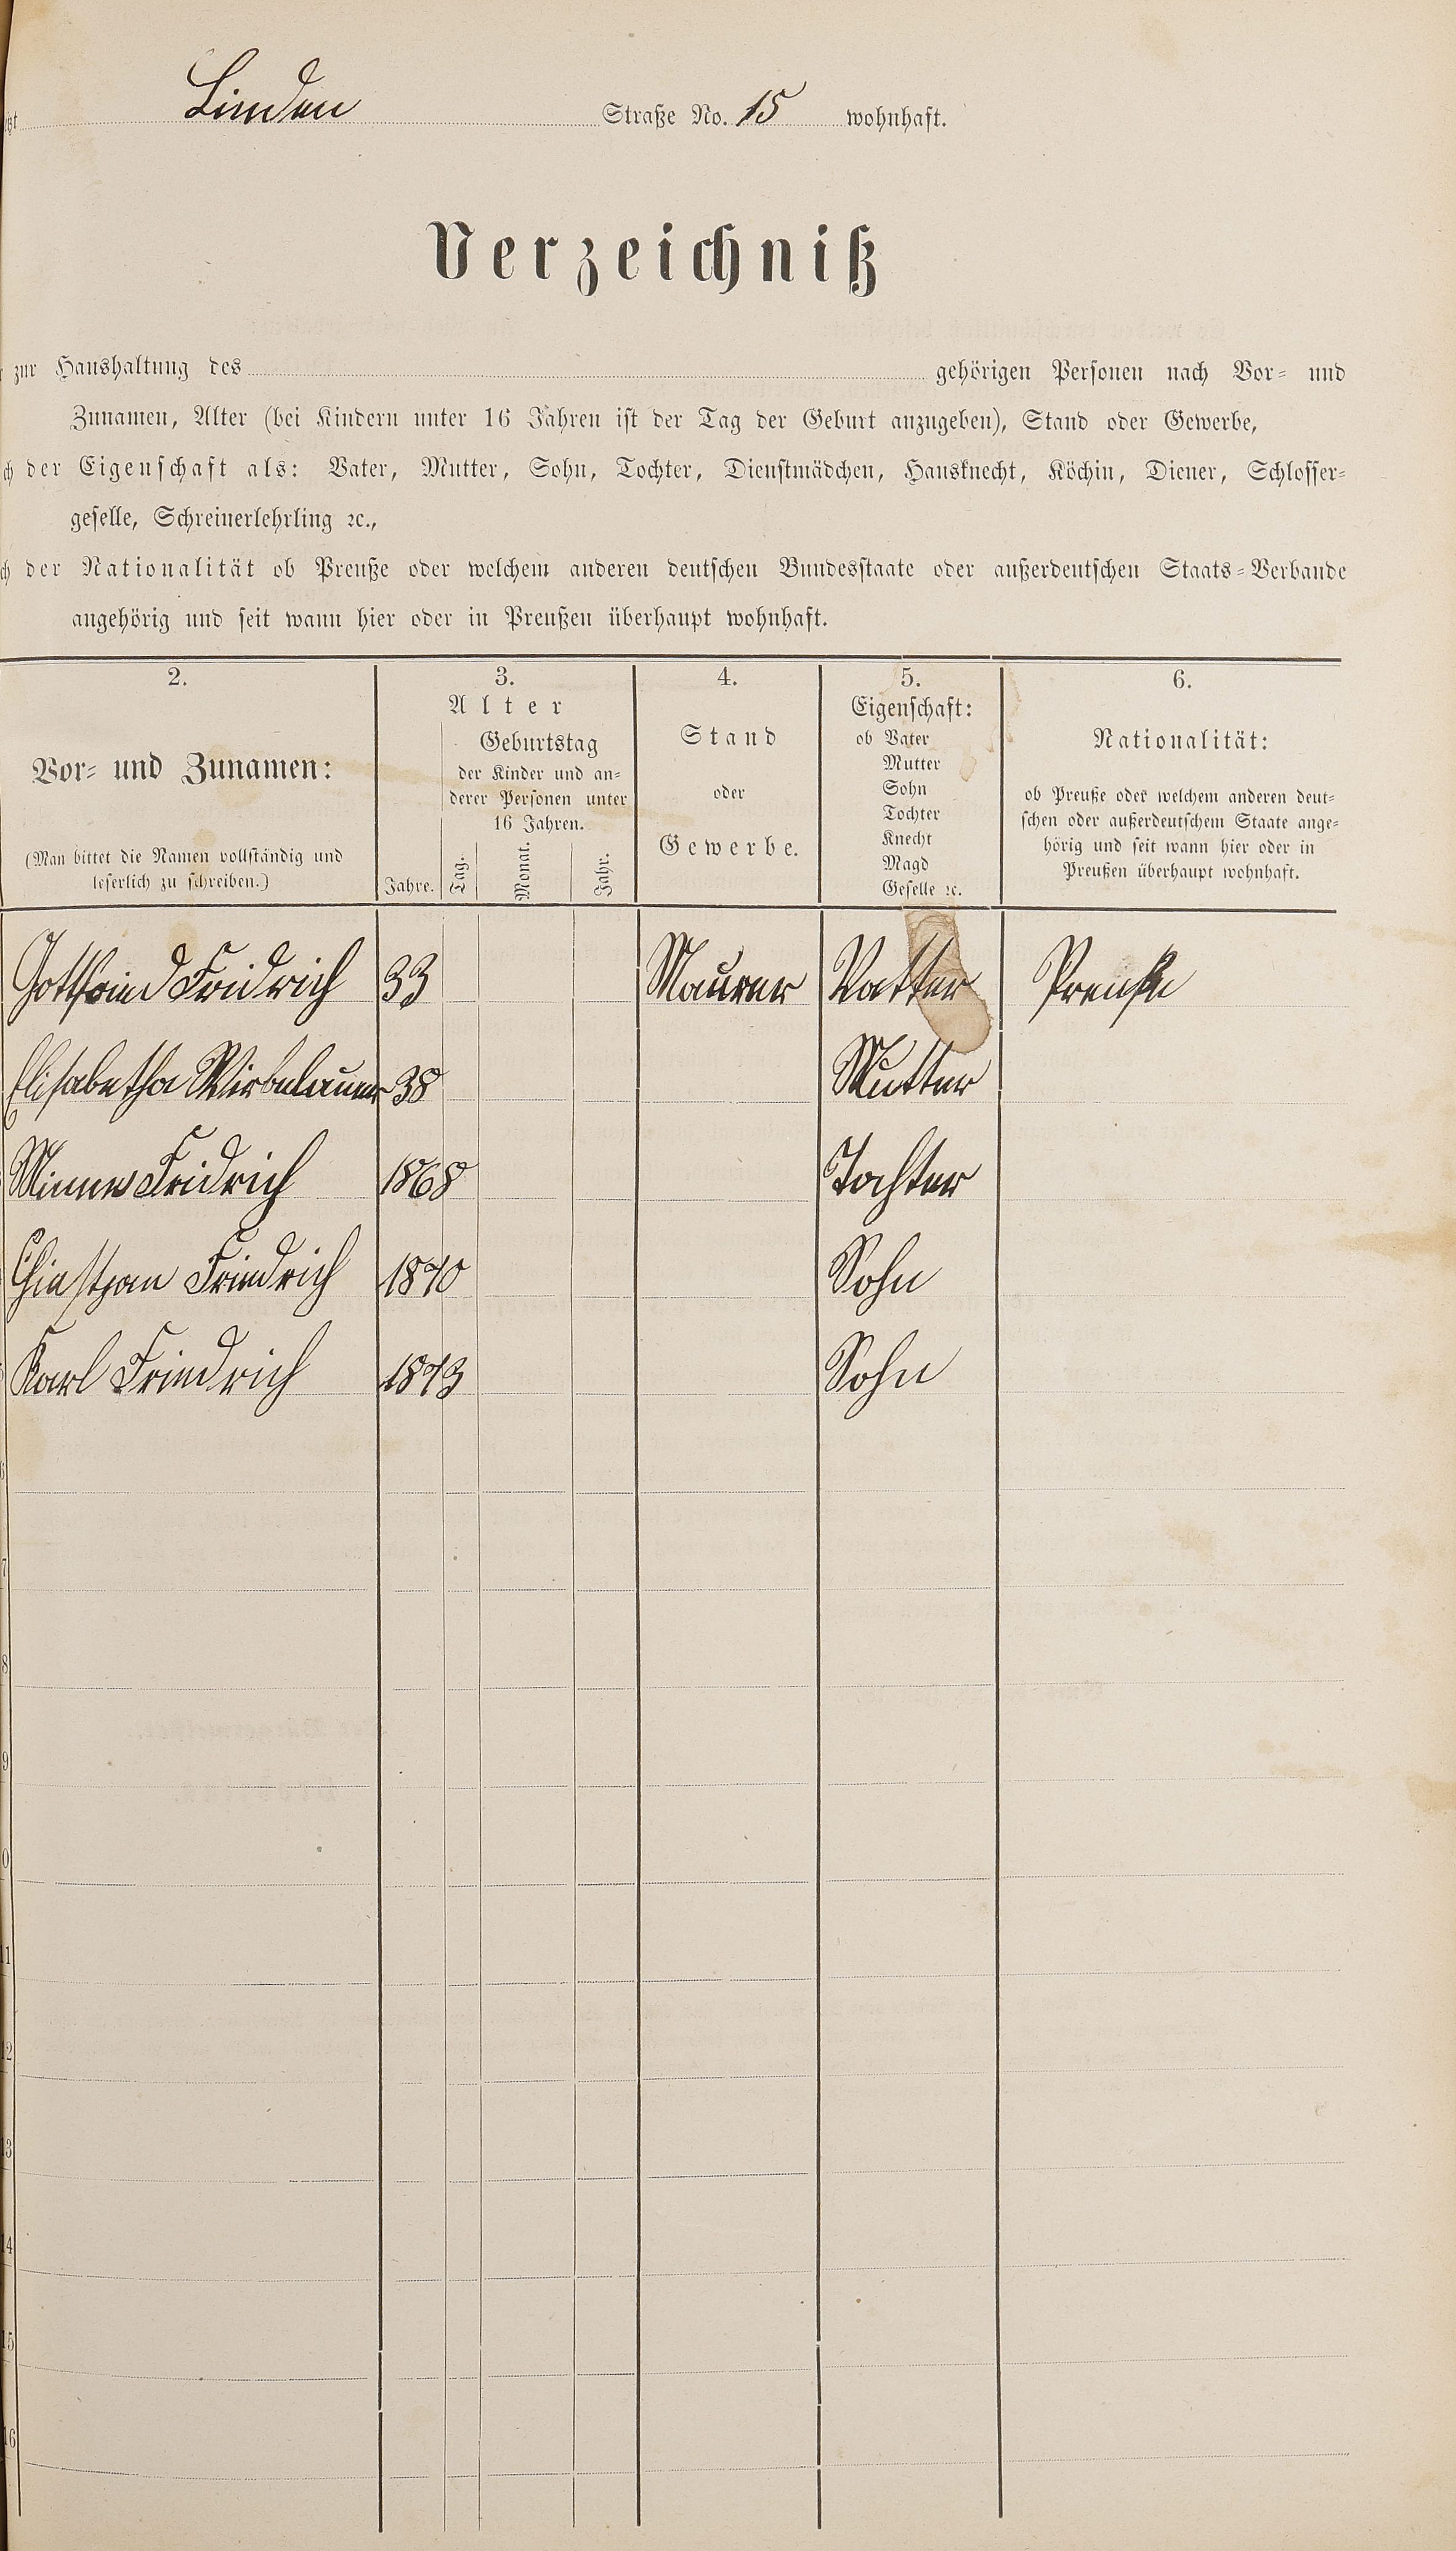 Linden Straße No. 15 wohnhaft.
Verzeichniß
zur Haushaltung des gehörigen Personen nach Vor- und
Zunamen, Alter (bei Kindern unter 16 Jahren ist der Tag der Geburt anzugeben), Stand oder Gewerbe,
der Eigenschaft als: Vater, Mutter, Sohn, Tochter, Dienstmädchen, Hausknecht, Köchin, Diener, Schlosser-
geselle, Schreinerlehrling ꝛc.,
der Nationalität ob Preuße oder welchem anderen deutschen Bundesstaate oder außerdeutschen Staats-Verbande
angehörig und seit wann hier oder in Preußen überhaupt wohnhaft.
2. 3. 4. 5. 6.
Vor- und Zunamen:
(Man bittet die Namen vollständig und
leserlich zu schreiben.)
Alter
Geburtstag
der Kinder und an-
derer Personen unter
16 Jahren.
Jahre. Tag. Monat. Jahr.
Stand
oder
Gewerbe.
Eigenschaft:
ob Vater
Mutter
Sohn
Tochter
Knecht
Magd
Geselle ꝛc.
Nationalität:
ob Preuße oder welchem anderen deut-
schen oder außerdeutschem Staate ange-
hörig und seit wann hier oder in
Preußen überhaupt wohnhaft.
Gottfried Fridrich 33 Maurer Vatter Preuße
Elisabetha 38 Mutter
Fridrich 1868 Tochter
Friedrich 1870 Sohn
Karl Friedrich 1873 Sohn
6
7
8
9
0
11
12
13
14
15
16